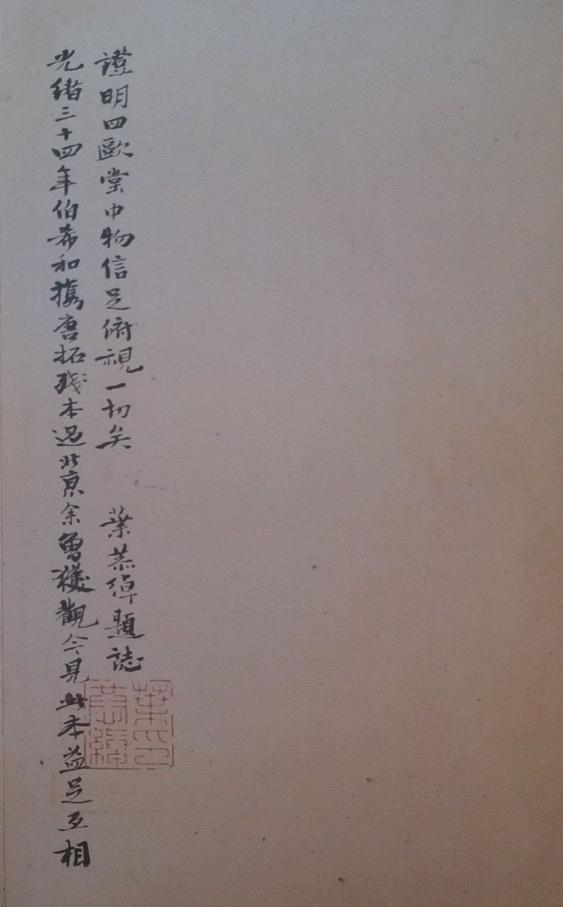 光緒三十四年伯希和攜唐拓殘本過北京余曾獲觀今見此本益足互相
證明四歐堂中物信足俯視一切矣 葉恭綽題誌
葉印
恭綽